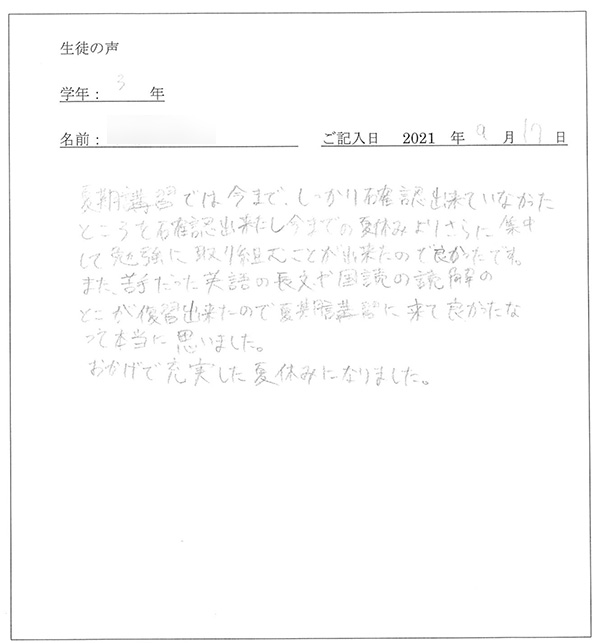 生徒の声
学年： 3 年
名前： ご記入日 2021 年 9 月 17 日
夏期講習では今まで、しっかり確認出来ていなかた
ところを確認出来たし今までの夏休みよりさらに集中
して勉強に取り組むことが出来たので良かったです。
また、苦手だった英語の長文や国読の読解の
とこが復習出来たので夏期講習に来て良かたな
って本当に思いました。
おかげで充実した夏休みになりました。